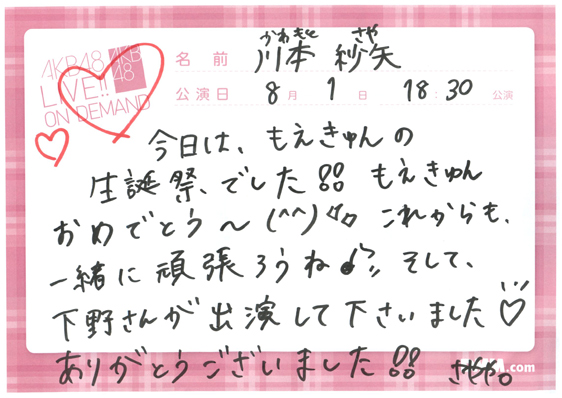 AKB48
LIVE!!
ON DEMAND
AKB
48
かわもと さや
名前 川本 紗矢
公演日 8月1日 18:30 公演
今日は、もえきゅんの
生誕祭、でした!! もえきゅん
おめでとう〜(^^) これからも、
一緒に頑張ろうね♪!! そして、
下野さんが出演して下さいました♡
ありがとうございました!!
.com
さやや。